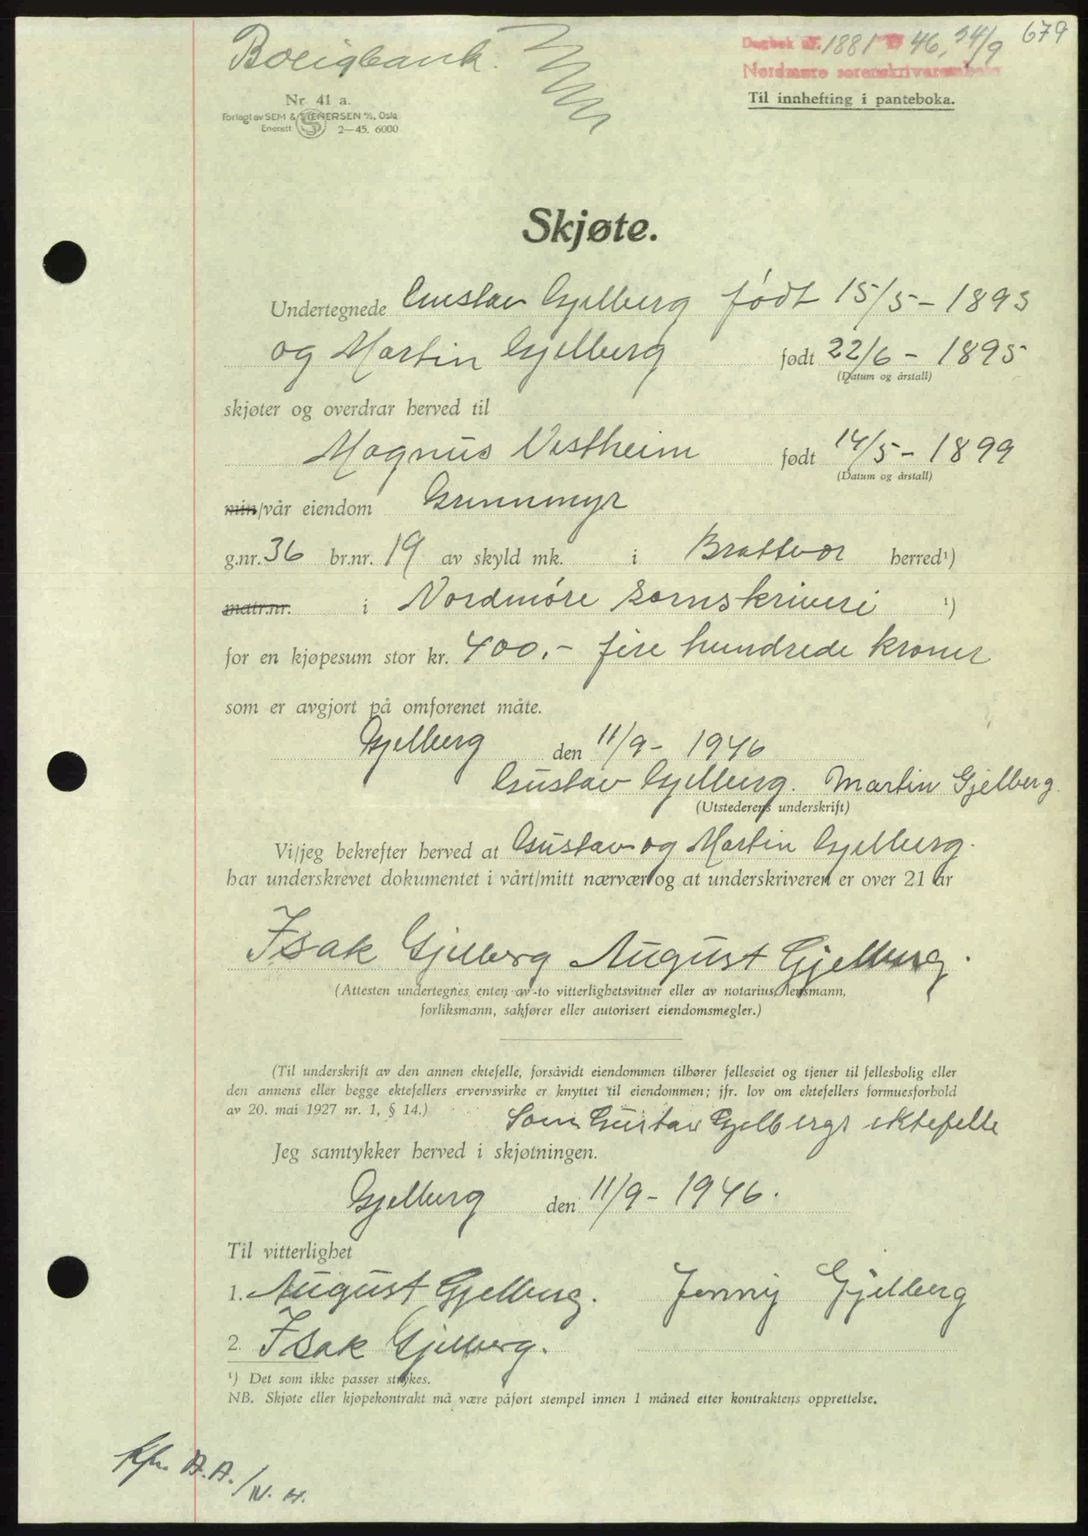 679
Boligbank.
Dagbok nr. 1881 19 46, 24/9
Nordmøre sorenskriverembete
Til innhefting i panteboka.
Nr. 41 a.
Forlagt av SEM & STENERSEN A/S, Oslo
Enerett 2—45. 6000
Skjøte.
Undertegnede Gustav Gjelberg født 15/5 - 1893
og Martin Gjelberg født 22/6 - 1895
(Datum og årstall)
skjøter og overdrar herved til
Magnus Vestheim født 14/5 - 1899
(Datum og årstall)
min/vår eiendom Grunnmyr
g.nr. 36 br.nr. 19 av skyld mk. i Brattvær herred¹)
matr.nr. i Nordmøre Sornskriveri ¹)
for en kjøpesum stor kr. 400,- fire hundrede kroner
som er avgjort på omforenet måte.
Gjelberg den 11/9 - 1946
Gustav Gjelberg. Martin Gjelberg.
(Utstederens underskrift)
Vi/jeg bekrefter herved at Gustav og Martin Gjelberg.
har underskrevet dokumentet i vårt/mitt nærvær og at underskriveren er over 21 år
Isak Gjelberg August Gjelberg.
(Attesten undertegnes enten av to vitterlighetsvitner eller av notarius, lensmann,
forliksmann, sakfører eller autorisert eiendomsmegler.)
(Til underskrift av den annen ektefelle, forsåvidt eiendommen tilhører felleseiet og tjener til fellesbolig eller
den annens eller begge ektefellers ervervsvirke er knyttet til eiendommen; jfr. lov om ektefellers formuesforhold
av 20. mai 1927 nr. 1, § 14.)
Som Gustav Gjelbergs ektefelle
Jeg samtykker herved i skjøtningen.
Gjelberg den 11/9 - 1946.
Til vitterlighet
1. August Gjelberg. Jenny Gjelberg
2. Isak Gjelberg.
¹) Det som ikke passer strykes.
NB. Skjøte eller kjøpekontrakt må være påført stempel innen 1 måned etter kontraktens opprettelse.
A.A./N. H.